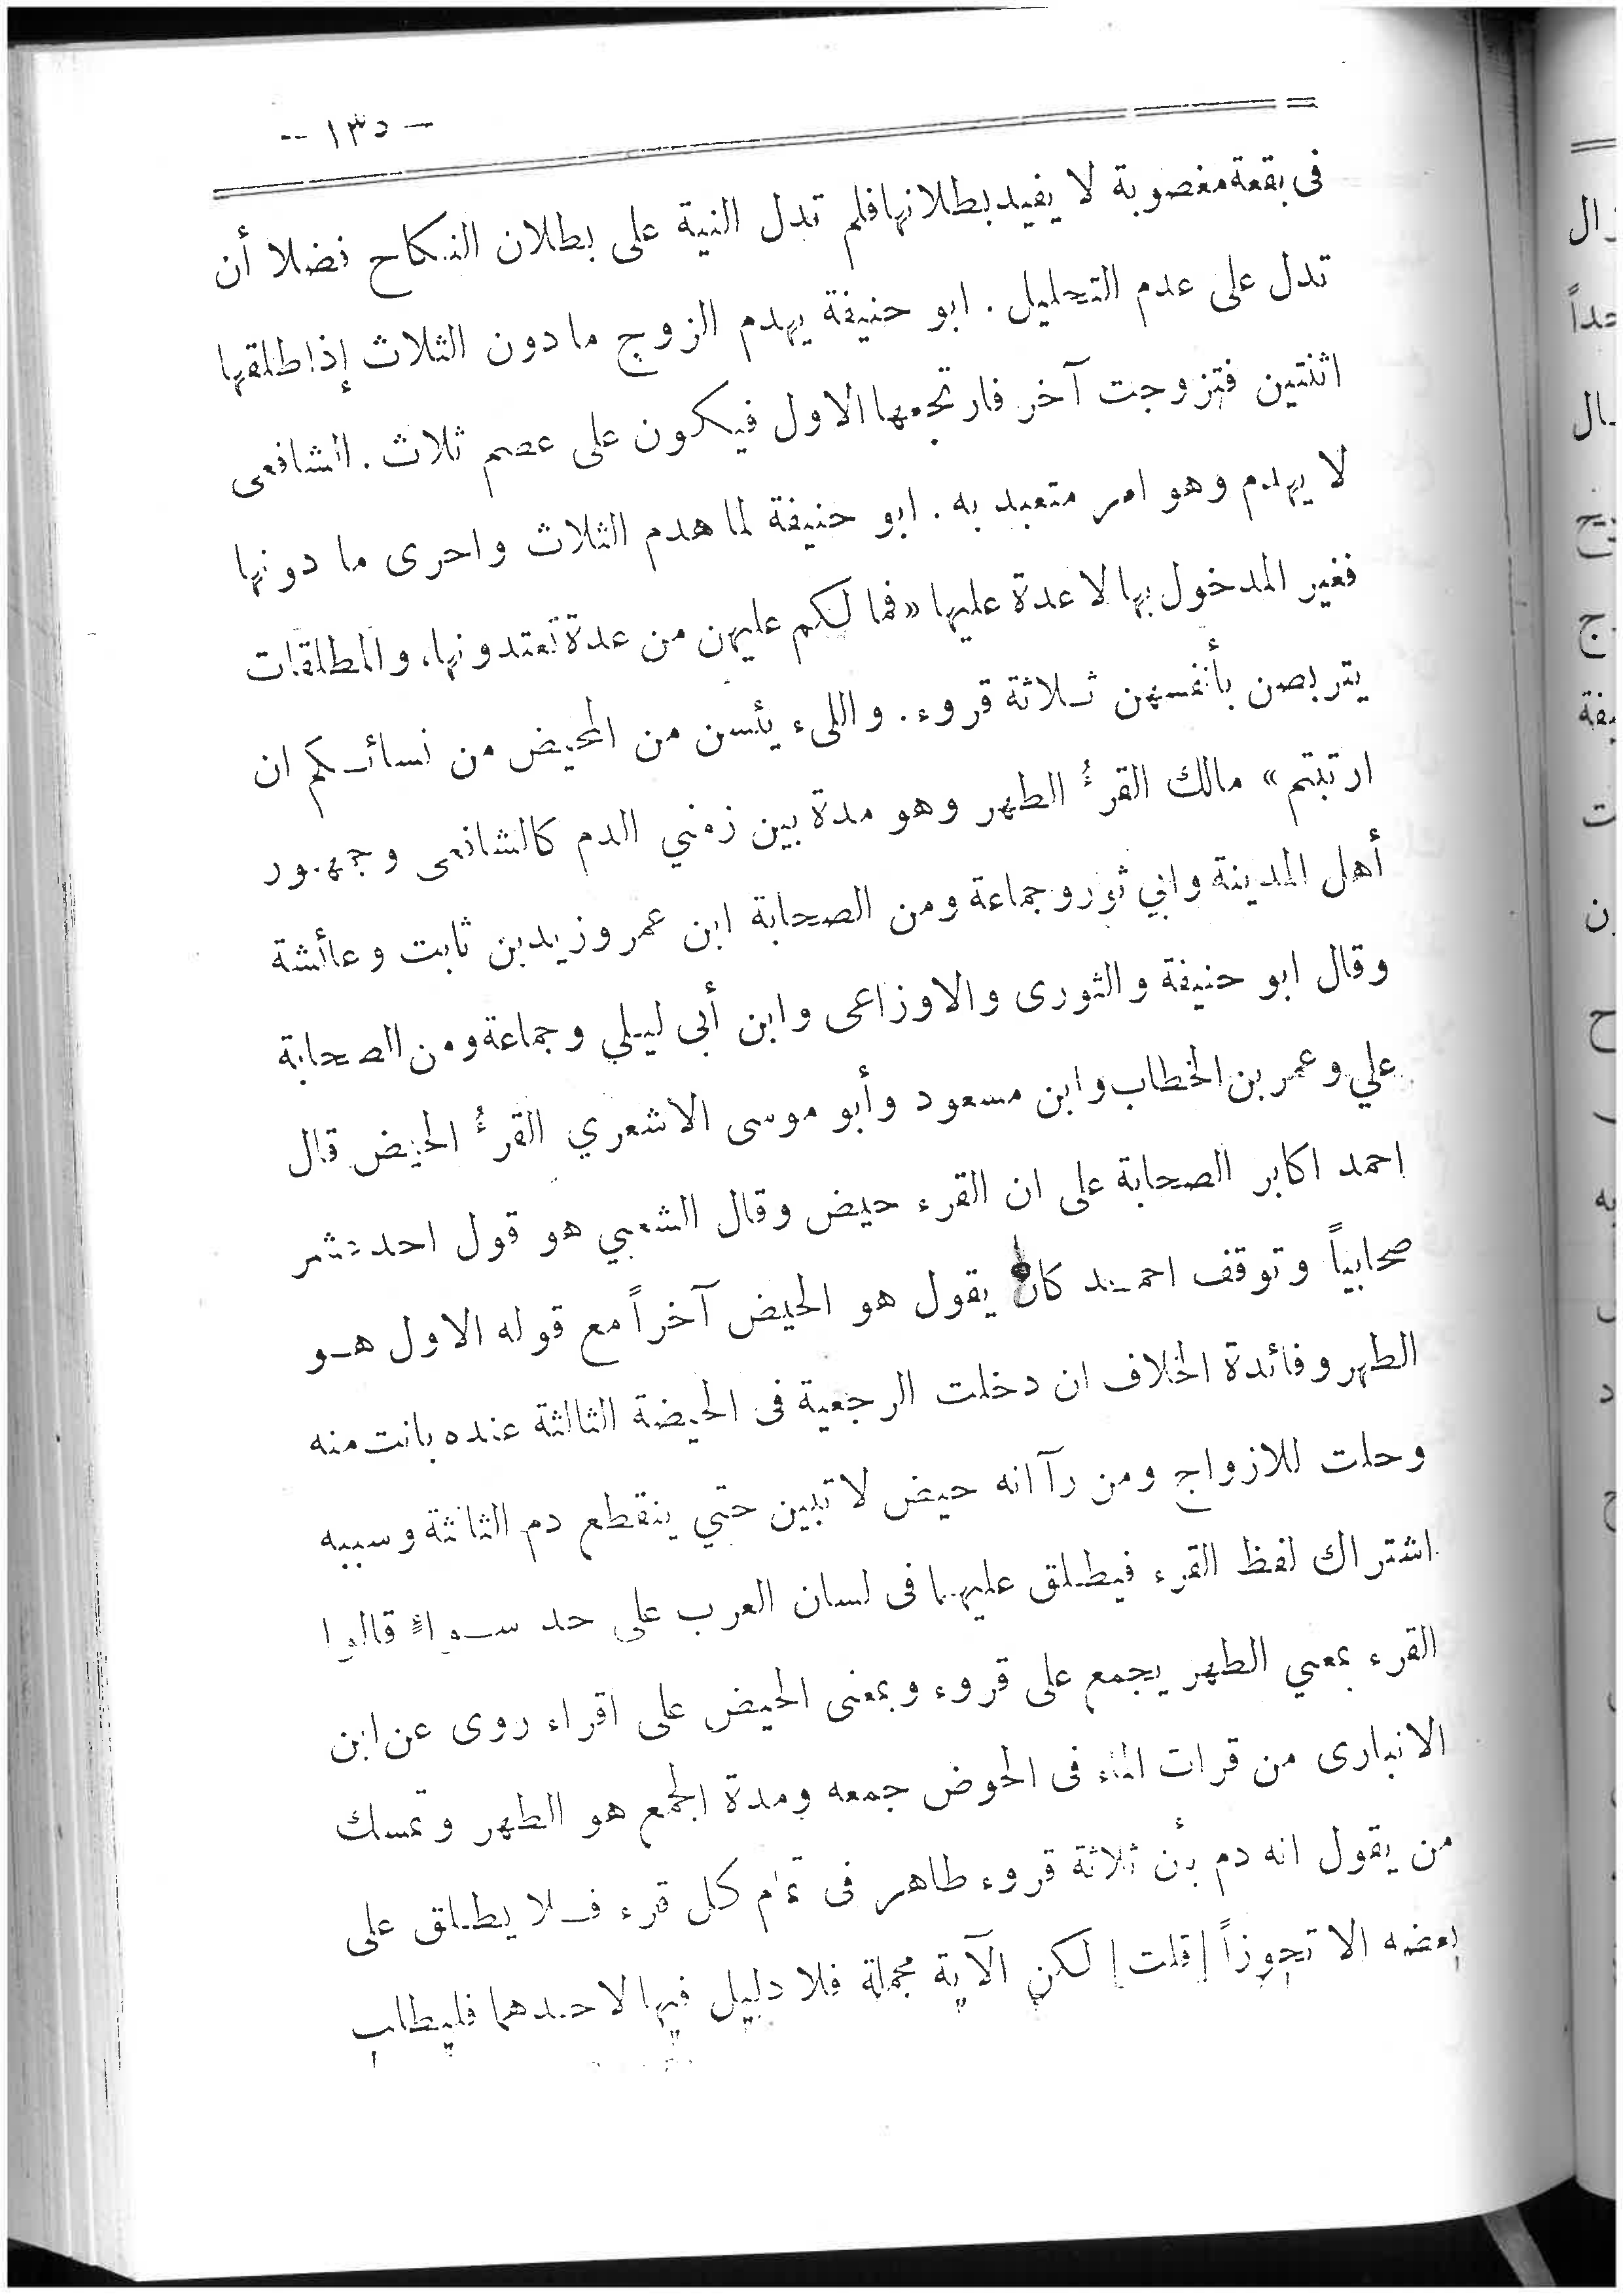 — ١٣٥ —
فى بقعة مغصوبة لا يفيد بطلانها فلم تدل النية على بطلان النكاح فضلا أن
تدل على عدم التحليل . ابو حنيفة يهدم الزوج ما دون الثلاث إذا طلقها
اثنتين فتزوجت آخر فارتجعها الاول فيكون على عصم ثلاث . الشافعى
لا يهدم وهو امر متعبد به . ابو حنيفة لما هدم الثلاث واحرى ما دونها
فغير المدخول بها لا عدة عليها «فما لكم عليهن من عدة تعتدونها، والمطلقات
يتربصن بأنفسهن ثلاثة قروء . واللىء يئسن من المحيض من نسائكم ان
ارتبتم» مالك القرءُ الطهر وهو مدة بين زمني الدم كالشافعى وجمهور
أهل المدينة وابي ثور وجماعة ومن الصحابة ابن عمر وزيد بن ثابت وعائشة
وقال ابو حنيفة والثورى والاوزاعى وابن أبى ليلي وجماعة ومن الصحابة
علي وعمر بن الخطاب وابن مسعود وأبو موسى الاشعري القرءُ الحيض قال
احمد اكابر الصحابة على ان القرء حيض وقال الشعبي هو قول احد عشر
صحابياً وتوقف احمد كان يقول هو الحيض آخراً مع قوله الاول هو
الطهر وفائدة الخلاف ان دخلت الرجعية فى الحيضة الثالثة عنده بانت منه
وحلت للازواج ومن رآ انه حيض لا تبين حتي ينقطع دم الثالثة وسببه
اشتراك لفظ القرء فيطلق عليهما فى لسان العرب على حد سواء قالوا
القرء بمعني الطهر يجمع على قروء وبمعنى الحيض على اقراء روى عن ابن
الانبارى من قرات الماء فى الحوض جمعه ومدة الجمع هو الطهر وتمسك
من يقول انه دم بأن ثلاثة قروء ظاهر فى تمام كل قرء فلا يطلق على
بعضه الا تجوزاً [قلت] لكن الآية مجملة فلا دليل فيها لاحدهما فليطلب